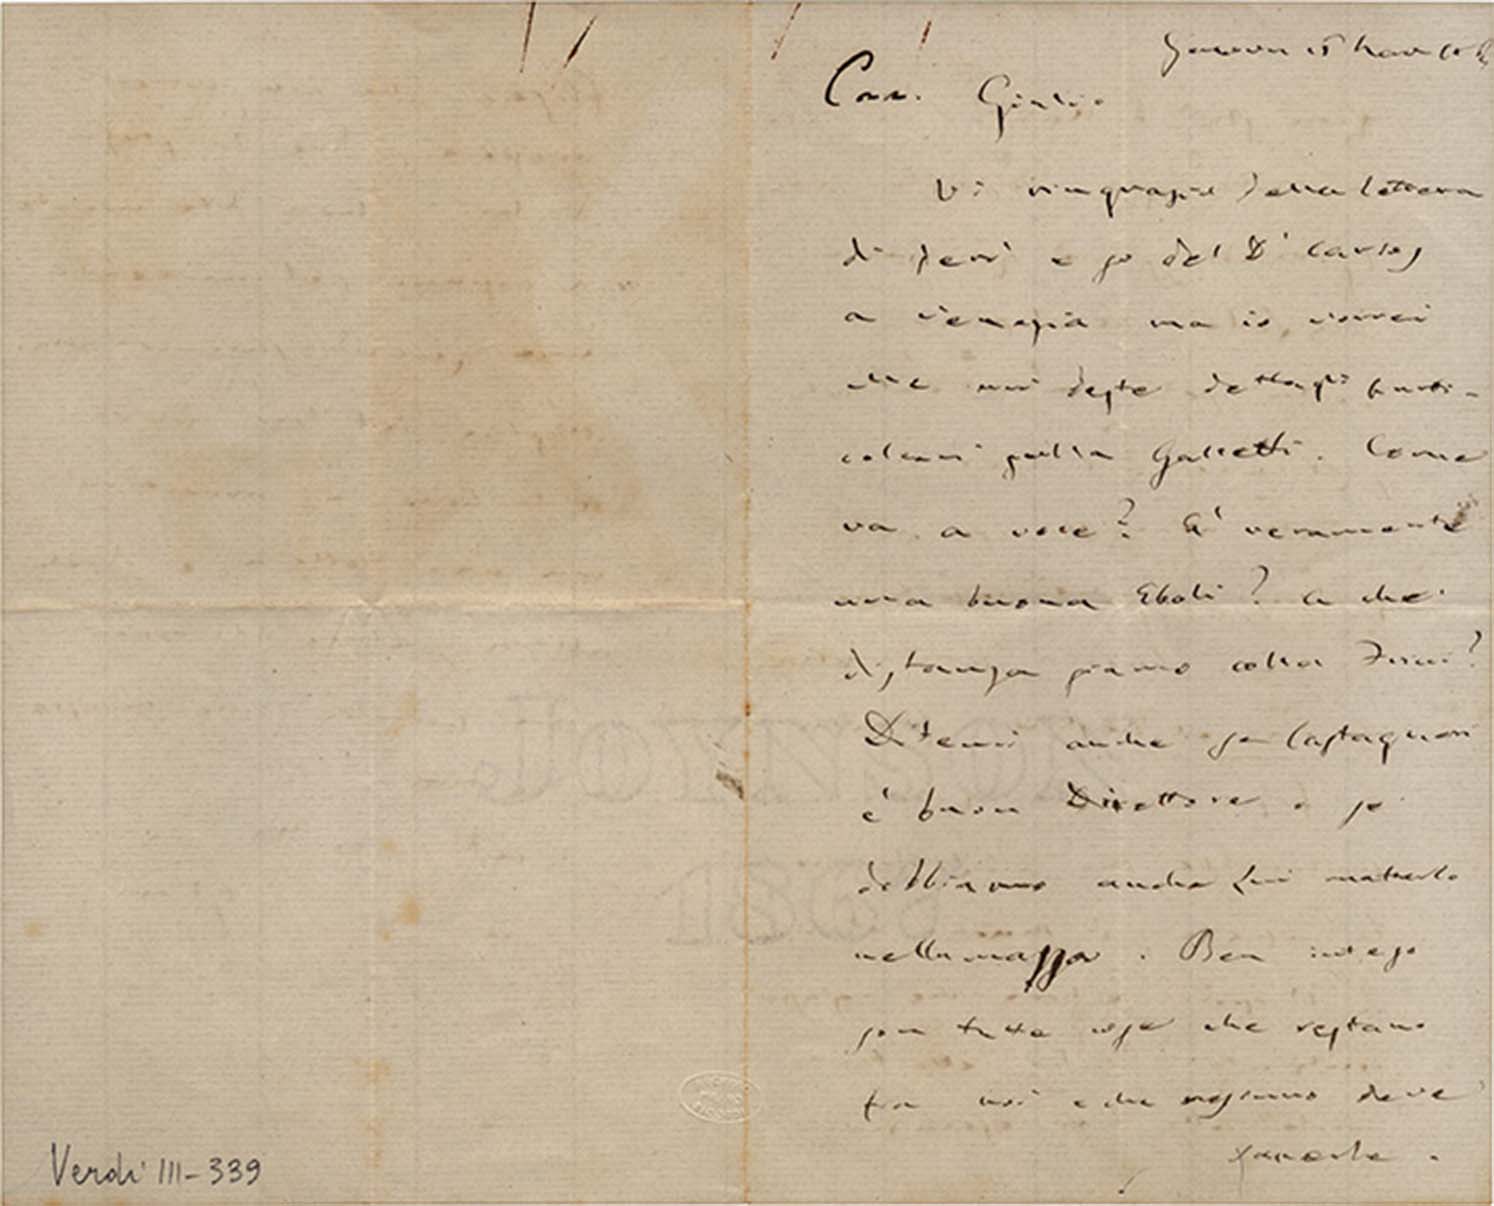 Genova 15 Mar
Caro Giulio
Vi ringrazio della lettera
di jeri e so del D. Carlos
a Venezia ma io vorrei
che mi deste dettagli parti-
colari sulla Galletti. Come
va a voce? E' veramente
una buona Eboli? a che
distanza siamo colla Fricci?
Ditemi anche se Castagneri
è buon Direttore o se
dobbiamo anche lui metterlo
nella mazza. Ben inteso
son tutte cose che restano
fra noi e che nessuno deve
saperle.
Verdi III-339